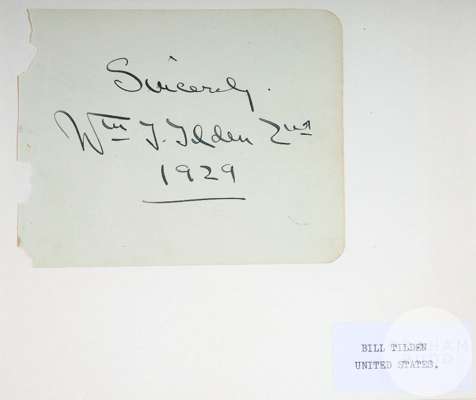 Sincerely.
Wm T. Tilden 2nd
1929
BILL TILDEN
UNITED STATES.